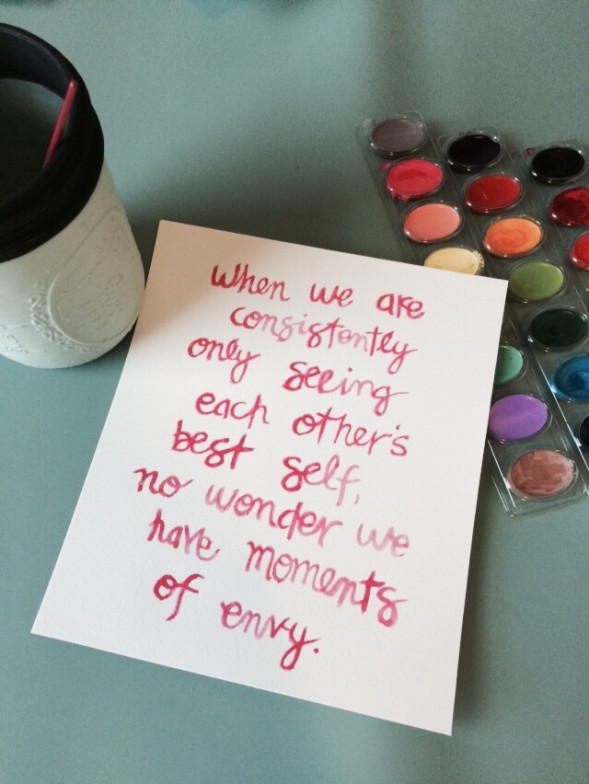 When we are
consistently
only seeing
each other's
best self,
no wonder we
have moments
of envy.